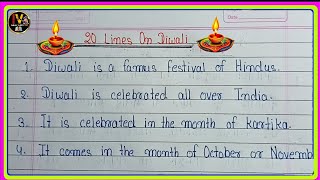 20 Lines On Diwali
1. Diwali is a famous festival of Hindus.
2. Diwali is celebrated all over India.
3. It is celebrated in the month of Kartika.
4. It comes in the month of October or Novemb